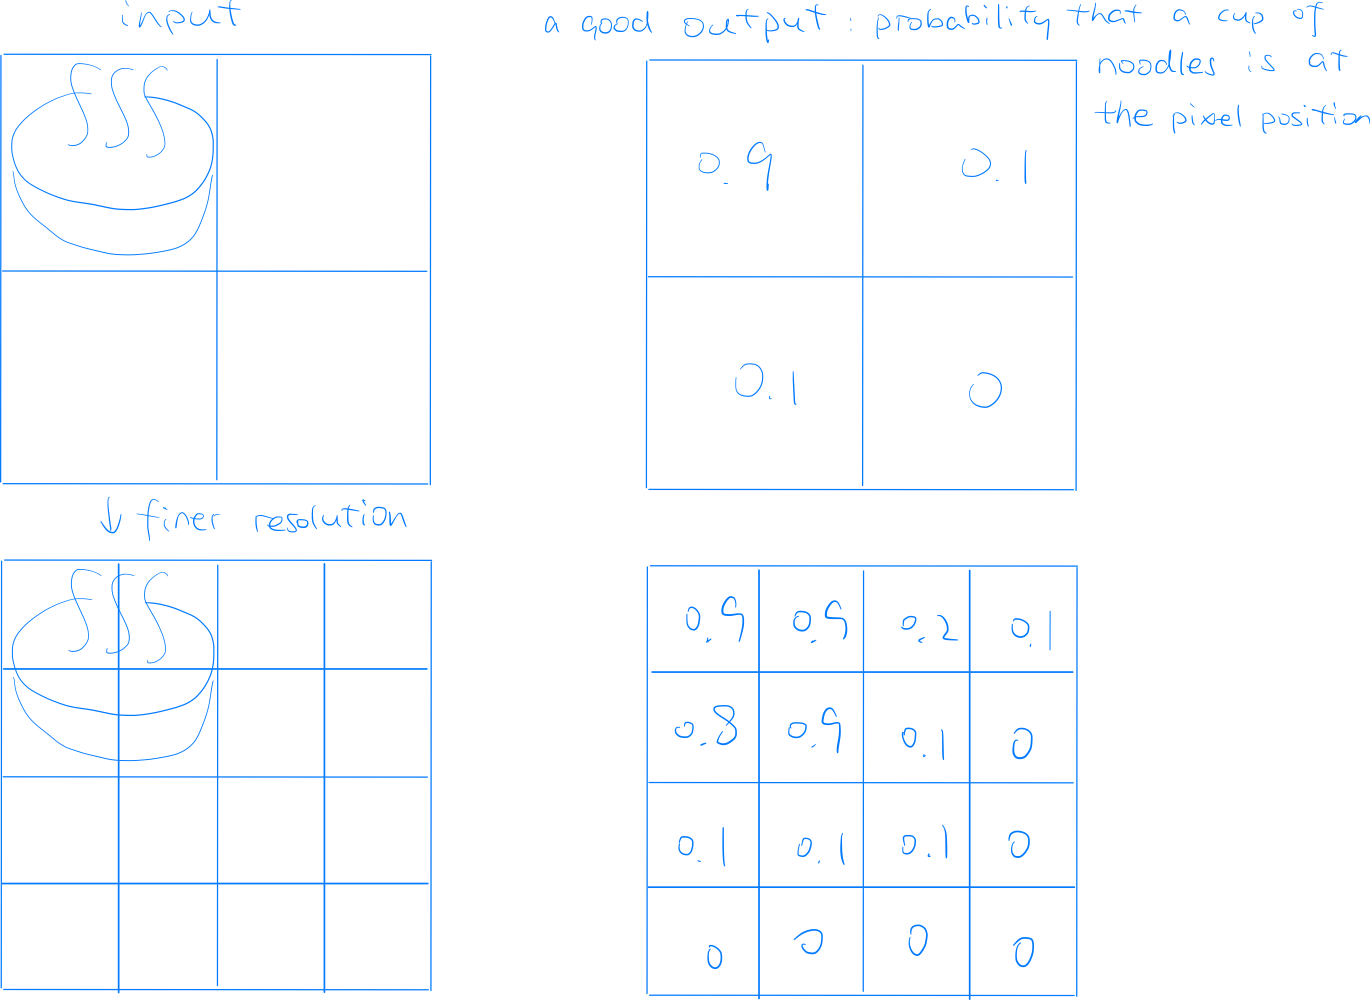 input
a good output : probability that a cup of
noodles is at
the pixel position
0.9 0.1
0.1 0
↓ finer resolution
0.9 0.9 0.2 0.1
0.8 0.9 0.1 0
0.1 0.1 0.1 0
0 0 0 0